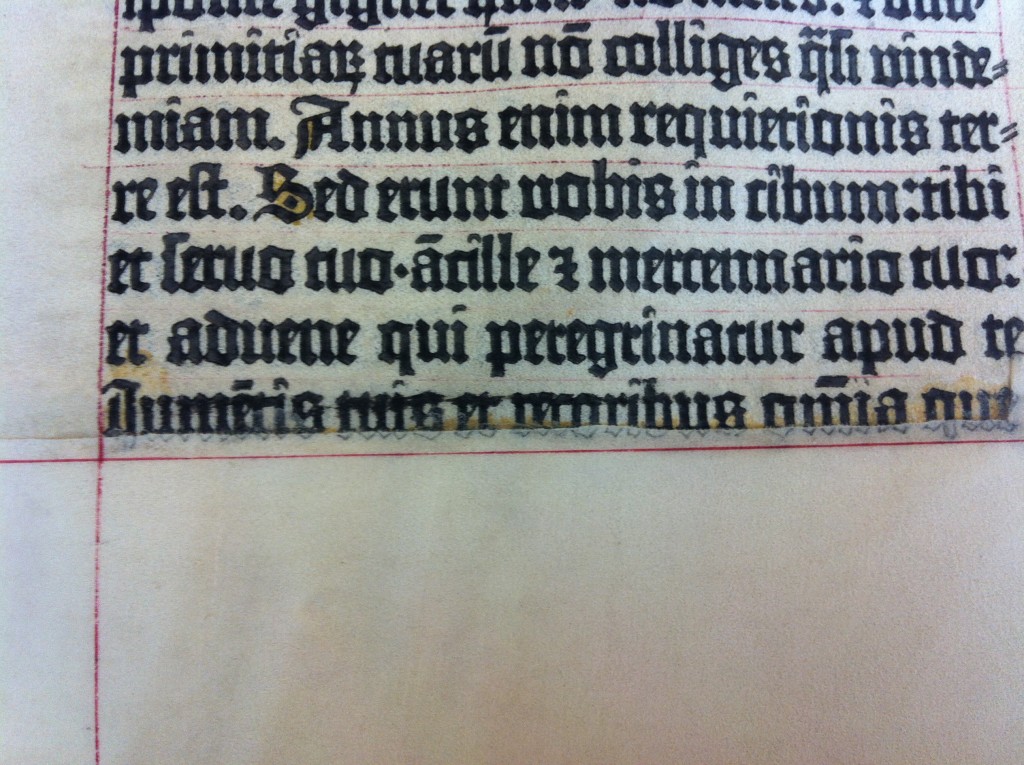 sponte gignet
primitiaꝝ tuarū nō colliges q̃si vinde⸗
miam. Annus enim requietionis ter⸗
re est. Sed erunt vobis in cibum: tibi
et seruo tuo· ācille ⁊ mercennario tuo:
et aduene qui peregrinatur apud te
Iumētis tuis et pecoribus om̄ia que